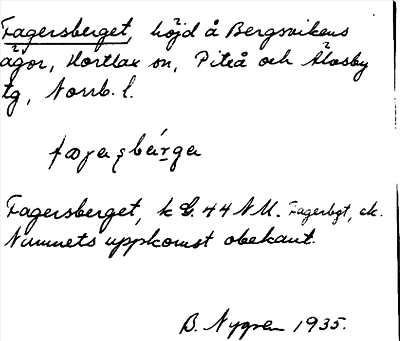 Fagersberget, höjd å Bergsvikens
ägor, Hortlax sn, Piteå och Älvsby
tg, Norrb. l.
fagersberget, k G. 44 NU. Fagerbgt, ek.
Namnets uppkomst obekant.
B. Nygren 1935.